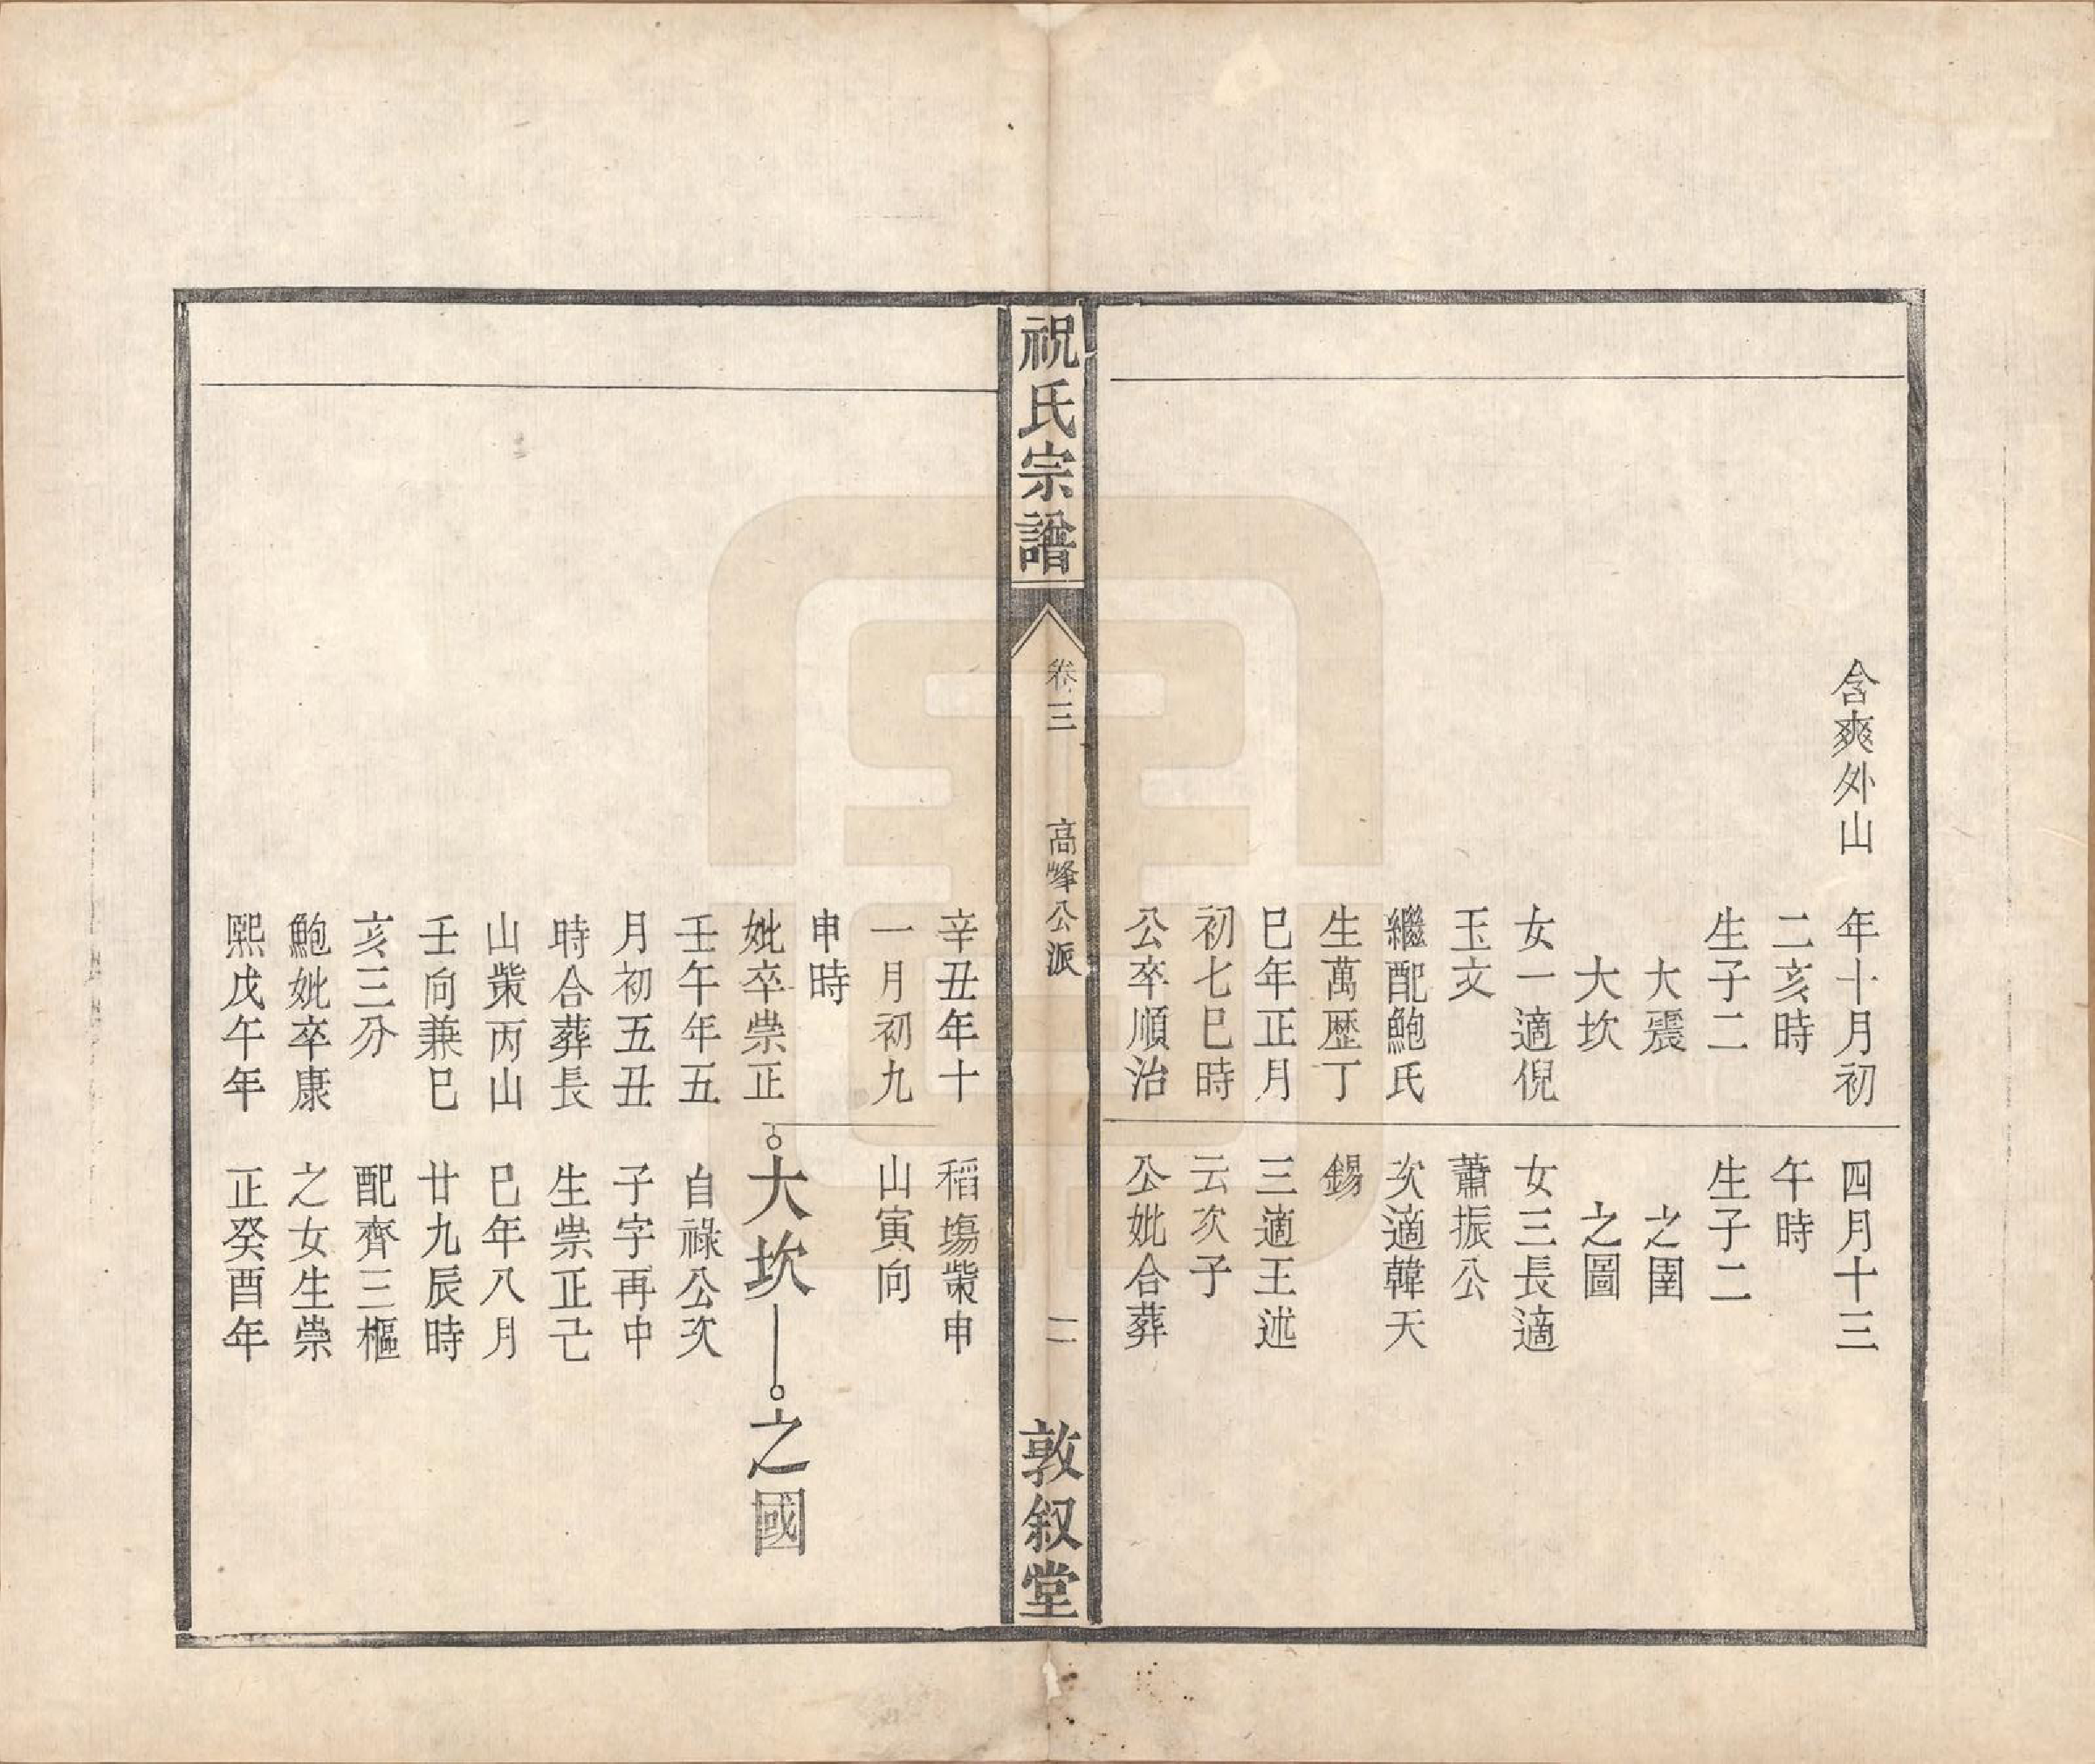 含爽外山
年十月初
二亥時
生子二
大震
大坎
女一適倪
玉文
繼配鮑氏
生萬歷丁
巳年正月
初七巳時
公卒順治
四月十三
午時
生子二
之圉
之圖
女三長適
蕭振公
次適韓天
錫
三適王述
云次子
公妣合葬
祝氏宗譜
卷三
高峰公派
二
敦叙堂
辛丑年十
一月初九
申時
妣卒崇正
壬午年五
月初五丑
時合葬長
山棐丙山
壬向兼巳
亥三分
鮑妣卒康
熙戊午年
稻塲棐申
山寅向
大坎
之國
自祿公次
子字再中
生崇正己
巳年八月
廿九辰時
配齊三樞
之女生崇
正癸酉年